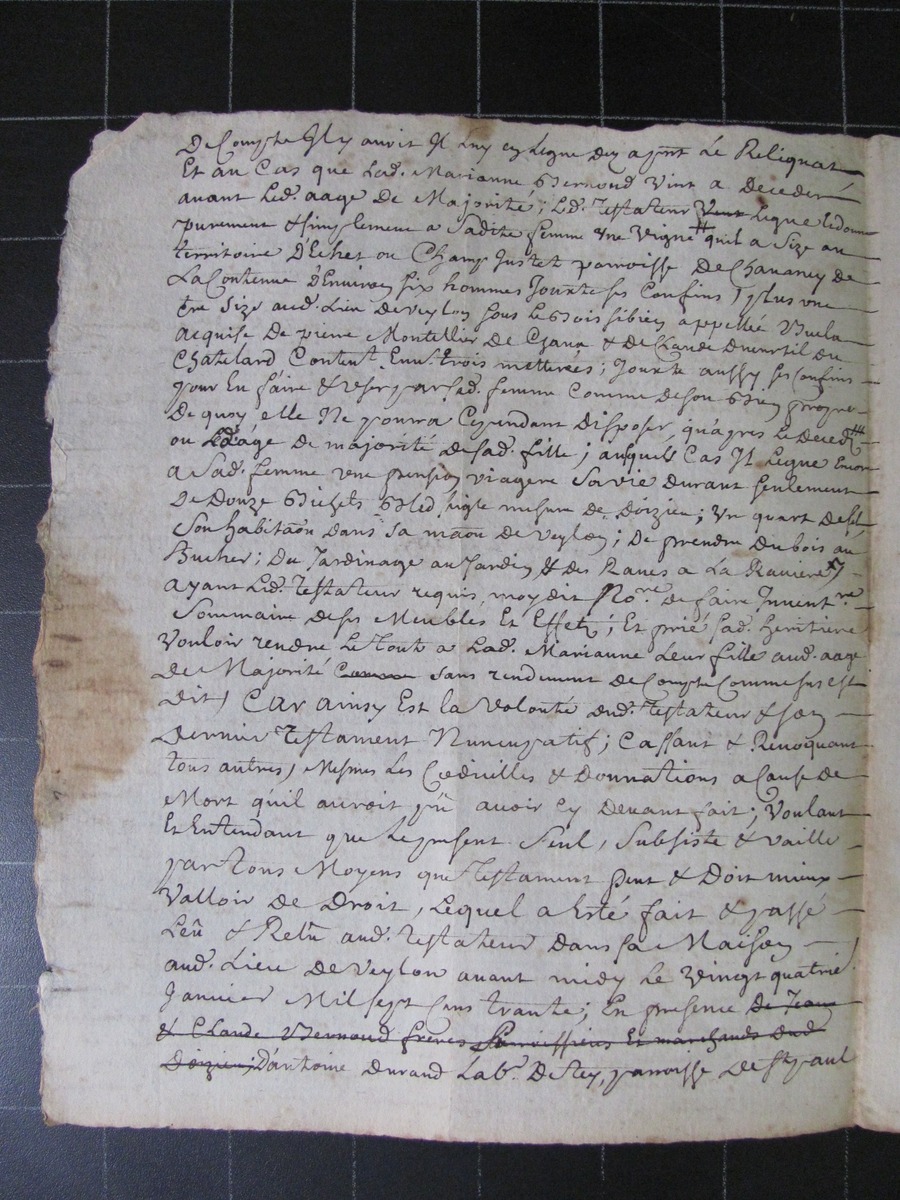 De Compte Il y avoit Il Luy en Legue des apnt Le Reliquat
Et au Cas que Lad. Marianne Bernoud Vint a Deceder
avant Led. aage De Majorité; Led. Testateur Veut Legue ledonne
purement & simplement a Sadite femme Une Vigne qu'il a Size au
territoire D'Echet ou Champ Justet parroisse De Chavaney De
La Contenue D'Environ six hommes Jouxte ses Confins, plus une
tre Size aud. Lieu De Veylon sous Le Bois appellée
acquise De pierre Montellier De & De Claude Du
Chatelard Content. Env. trois metterées; Jouxte aussy ses Confins
pour En faire & User par Sad. femme Comme De son Bien propre
De quoy elle Ne pourra Cependant Disposer, qu'apres Le Deced
ou Led. age De majorité De Sad. fille; auquels Cas Il Legue Encore
a Sad. femme une pension viagere Sa vie Durant seulement
De Douze Bichets Bled seigle mesure De Doizieu; Un quart De sel,
Son habitaon Dans Sa maon De Veylon; De prendre Du bois au
Bucher; Du Jardinage au Jardin & Des Raves a La Raviere
ayant Led. Testateur requis moy dit No.re De faire Invent.re
Sommaire De ses Meubles Et Effets; Et prié Sad. heritiere
Vouloir rendre Le tout a Lad. Marianne Leur fille aud. aage
De Majorité Comme Sans rendement De Compte Comme sus est
Dit, Car ainsy Est la Volonté dud. Testateur & son
Dernier Testament Nuncupatif; Cassant & Revoquant
tous autres, Mesmes Les Codicilles & Donnations a Cause De
Mort qu'il auroit pû avoir Cy Devant fait; Voulant
Et Entendant que Le present Seul, Subsiste & vaille
par tous Moyens que Testament peut & Doit mieux
Valloir De Droit, Lequel a Esté fait & passé
Leû & Releu aud. Testateur Dans sa Maison
aud. Lieu De Veylon avant midy Le Vingt quatrie
Janvier Mil sept Cens trante; En presence De Jean
& Claude Bernoud freres Et marchands Dud
Doizieu; D'antoine Durand Lab.r De parroisse De St paul